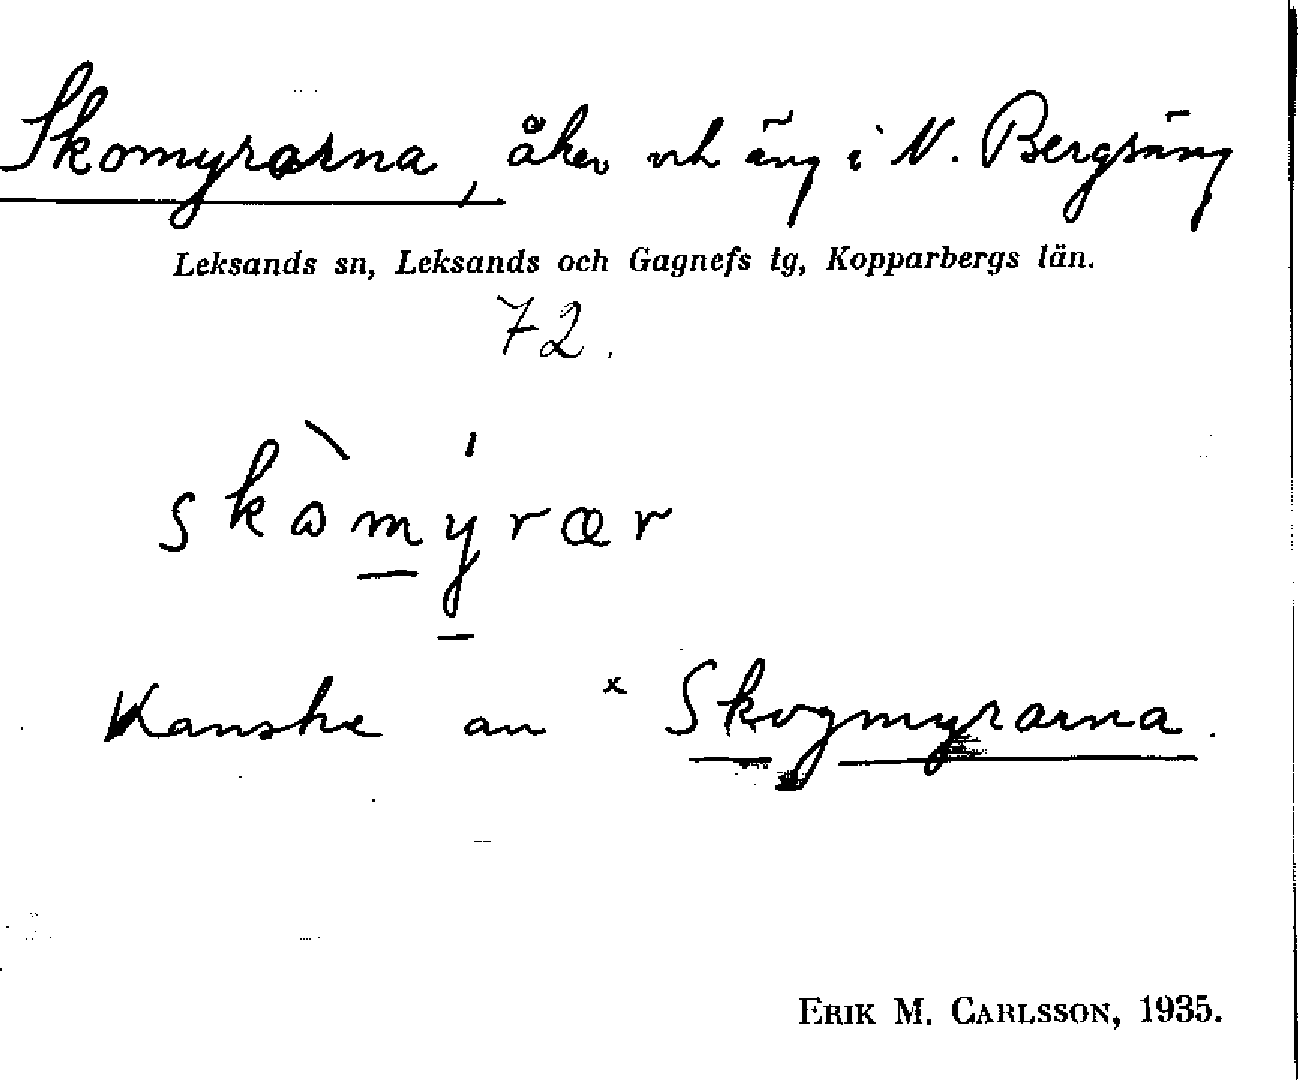 Skomyrarna, åker och äng i N. Bergsäng
Leksands sn, Leksands och Gagnefs tg, Kopparbergs län.
72.
skòmýrær
Kanske an ˣ Skogmyrarna.
ERIK M. CARLSSON, 1935.